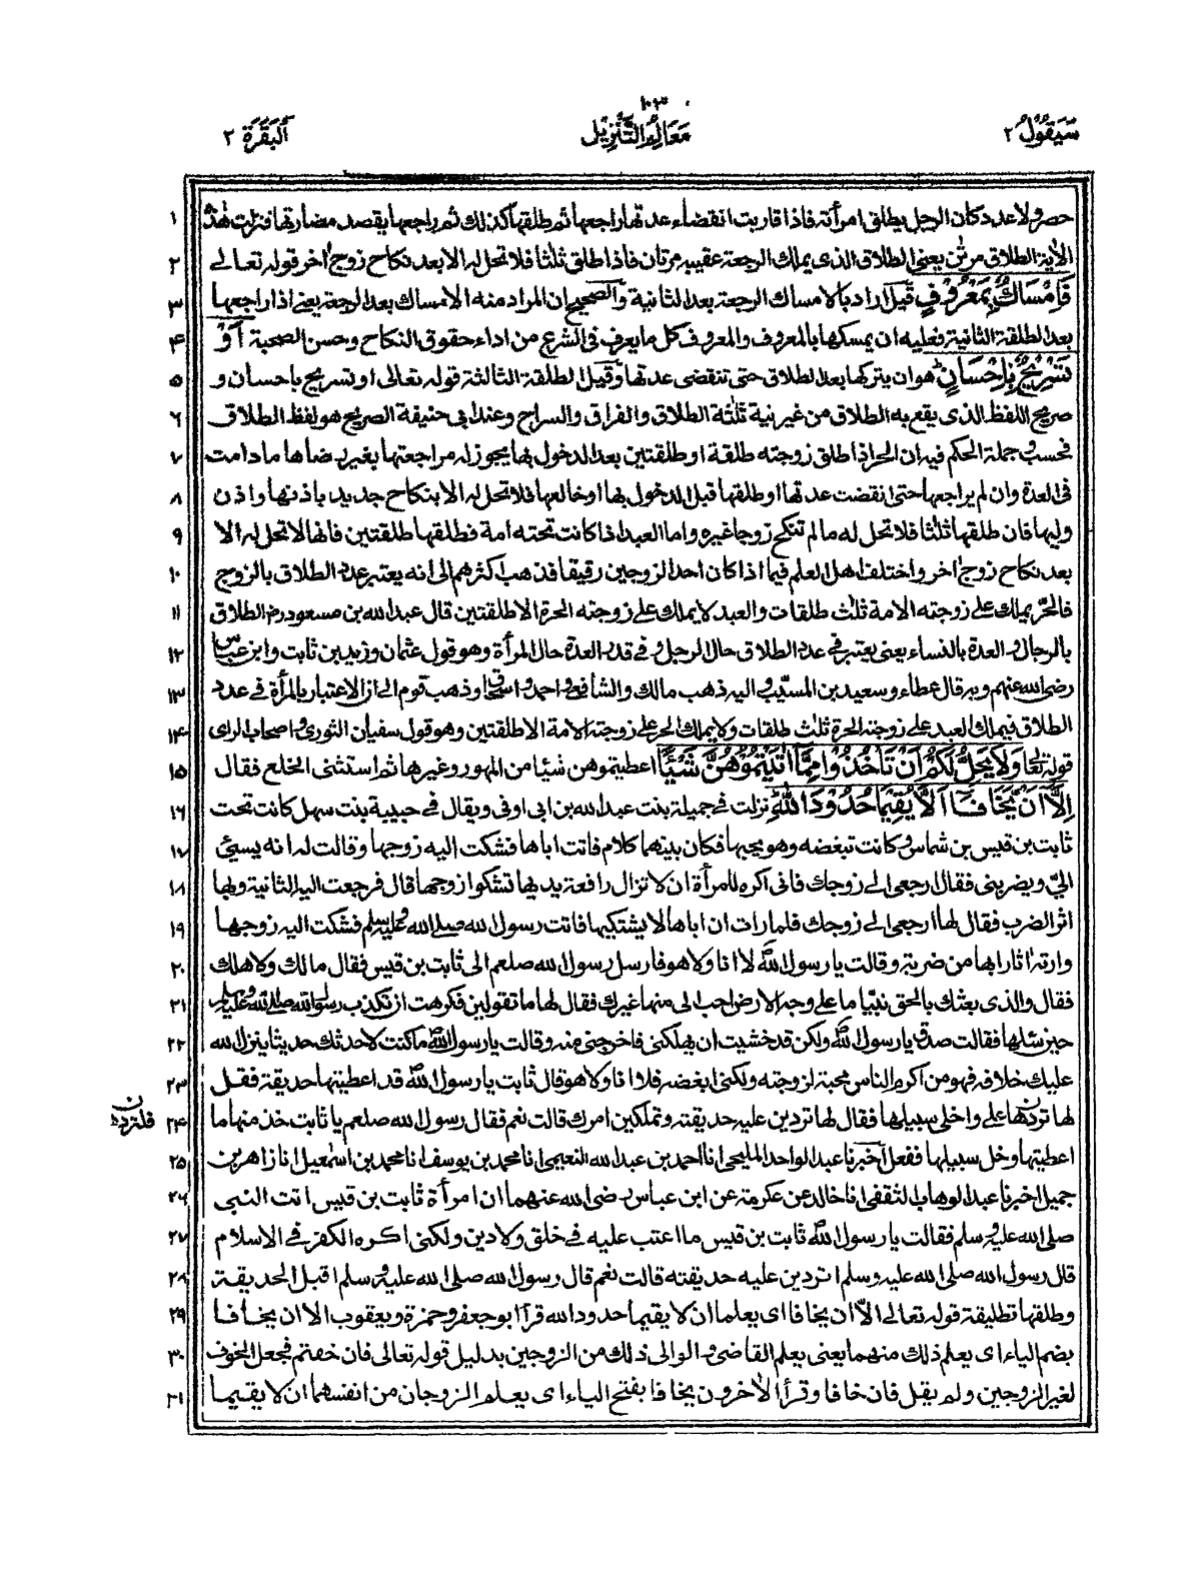 ١٠٣
سَيَقُوْلُ ٢
مَعَالِمُ التَّنْزِيْل
اَلْبَقَرَة ٢
حصر ولا عدد كان الرجل يطلق امرأته فاذا قاربت انقضاء عدتها راجعها ثم طلقها كذلك ثم راجعها يقصد مضارتها فنزلت هذه ١
الاٰية الطلاق مرتٰن يعنى الطلاق الذى يملك الرجعة عقيبه مرتان فاذا طلق ثلٰثا فلا تحل له الا بعد نكاح زوج اٰخر قوله تعالى ٢
فَاِمْسَاكٌۢ بِمَعْرُوْفٍ قيل اراد بالامساك الرجعة بعد الثانية والصحيح ان المراد منه الامساك بعد الرجعة يعنى اذا راجعها ٣
بعد الطلقة الثانية فعليه ان يمسكها بالمعروف والمعروف كل ما يعرف فى الشرع من اداء حقوق النكاح وحسن الصحبة اَوْ ٤
تَسْرِيْحٌۢ بِاِحْسَانٍ هو ان يتركها بعد الطلاق حتى تنقضى عدتها وقيل الطلقة الثالثة قوله تعالى او تسريح باحسان و ٥
صريح اللفظ الذى يقع به الطلاق من غير نية ثلٰثة الطلاق والفراق والسراح وعند ابى حنيفة الصريح هو لفظ الطلاق ٦
فحسب وجملة الحكم فيه ان الحر اذا طلق زوجته طلقة او طلقتين بعد الدخول بها يجوز له مراجعتها بغير رضاها ما دامت ٧
فى العدة وان لم يراجعها حتى انقضت عدتها او طلقها قبل الدخول بها او خالعها فلا تحل له الا بنكاح جديد باذنها واذن ٨
وليها فان طلقها ثلٰثا فلا تحل له ما لم تنكح زوجا غيره واما العبد اذا كانت تحته امة فطلقها طلقتين فانها لا تحل له الا ٩
بعد نكاح زوج اٰخر واختلف اهل العلم فيما اذا كان احد الزوجين رقيقا فذهب اكثرهم الى انه يعتبر عدد الطلاق بالزوج ١٠
فالحر يملك على زوجته الامة ثلٰث طلقات والعبد لا يملك على زوجته الحرة الا طلقتين قال عبد الله بن مسعود رضـ الطلاق ١١
بالرجال والعدة بالنساء يعنى يعتبر فى عدد الطلاق حال الرجل وفى قدر العدة حال المرأة وهو قول عثمان وزيد بن ثابت وابن عباس ١٢
رضى الله عنهم وبه قال عطاء وسعيد بن المسيّب واليه ذهب مالك والشافعى واحمد واسحٰق وذهب قوم الى ان الاعتبار بالمرأة فى عدد ١٣
الطلاق فيملك العبد على زوجته الحرة ثلٰث طلقات ولا يملك الحر على زوجته الامة الا طلقتين وهو قول سفيان الثورى واصحاب الراى ١٤
قوله تعالى وَلَا يَحِلُّ لَكُمْ اَنْ تَأْخُذُوْا مِمَّا اٰتَيْتُمُوْهُنَّ شَيْـًٔا اعطيتموهن شيئا من المهور وغيرها ثم استثنى الخلع فقال ١٥
اِلَّآ اَنْ يَّخَافَـآ اَلَّا يُقِيْمَا حُدُوْدَ اللّٰهِ نزلت فى جميلة بنت عبد الله بن ابى اوفى ويقال فى حبيبة بنت سهل كانت تحت ١٦
ثابت بن قيس بن شماس وكانت تبغضه وهو يحبها فكان بينهما كلام فاتت اباها فشكت اليه زوجها وقالت له انه يسيئ ١٧
الىّ ويضربنى فقال ارجعى الى زوجك فانى اكره للمرأة ان لا تزال رافعة يديها تشكو زوجها قال فرجعت اليه الثانية وبها ١٨
اثر الضرب فقال لها ارجعى الى زوجك فلما رات ان اباها لا يشتكيها فاتت رسول الله صلى الله عليه وسلم فشكت اليه زوجها ١٩
وارته اٰثارا بها من ضربه وقالت يا رسول اللّٰه لا انا ولا هو فارسل رسول الله صلعم الى ثابت بن قيس فقال مالك ولاهلك ٢٠
فقال والذى بعثك بالحق نبيّا ما على وجه الارض احب الى منها غيرك فقال لها ما تقولين فكرهت ان تكذب رسول الله صلى الله عليه وسلم ٢١
حين سئلها فقالت صدق يا رسول اللّٰه ولكن قد خشيت ان يهلكنى فاخرجنى منه وقالت يا رسول اللّٰه ما كنت لاحدثك حديثا ينزل الله ٢٢
عليك خلافه فهو من اكرم الناس محبة لزوجته ولكنى ابغضه فلا انا ولا هو قال ثابت يا رسول اللّٰه قد اعطيتها حديقة فقل ٢٣
لها تردها على واخلى سبيلها فقال لها تردين عليه حديقته وتملكين امرك قالت نعم فقال رسول الله صلعم يا ثابت خذ منها ما ٢٤
فلتردها ن
اعطيتها وخل سبيلها ففعل اخبرنا عبد الواحد المليحى انا احمد بن عبد الله النعيمى انا محمد بن يوسف انا محمد بن اسمٰعيل انا زاهر بن ٢٥
جميل اخبرنا عبد الوهاب الثقفى انا خالد عن عكرمة عن ابن عباس رضى الله عنهما ان امرأة ثابت بن قيس اتت النبى ٢٦
صلى الله عليه وسلم فقالت يا رسول اللّٰه ثابت بن قيس ما اعتب عليه فى خلق ولا دين ولكنى اكره الكفر فى الاسلام ٢٧
قال رسول الله صلى الله عليه وسلم اتردين عليه حديقته قالت نعم قال رسول الله صلى الله عليه وسلم اقبل الحديقة ٢٨
وطلقها تطليقة قوله تعالى الّا ان يخافا اى يعلما ان لا يقيما حدود الله قرأ ابو جعفر وحمزة ويعقوب الا ان يخافا ٢٩
بضم الياء اى يعلم ذلك منهما يعنى يعلم القاضى والوالى ذلك من الزوجين بدليل قوله تعالى فان خفتم فجعل الخوف ٣٠
لغير الزوجين ولم يقل فان خافا وقرأ الاٰخرون يخافا بفتح الياء اى يعلم الزوجان من انفسهما ان لا يقيما ٣١